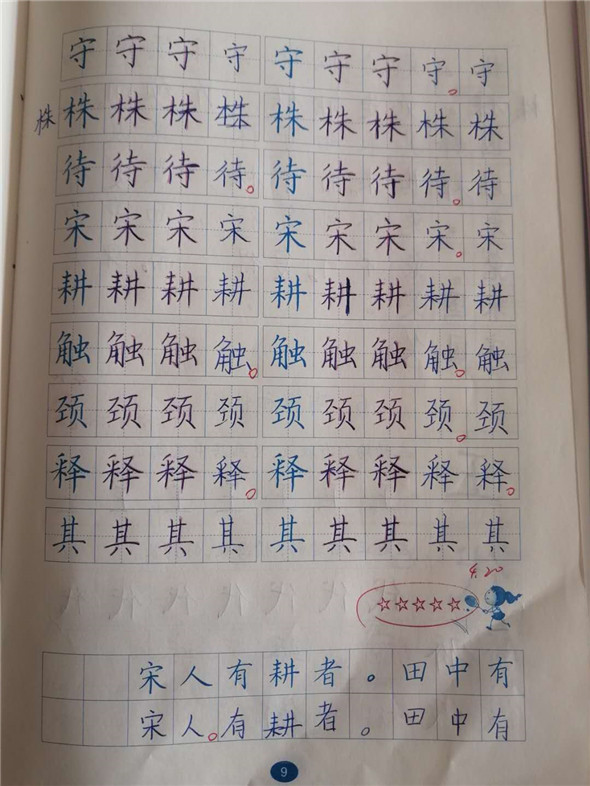 守守守守守守守守守
株株株株株株株株株株
待待待待待待待待待
宋宋宋宋宋宋宋宋宋
耕耕耕耕耕耕耕耕耕
触触触触触触触触触
颈颈颈颈颈颈颈颈颈
释释释释释释释释释
其其其其其其其其其
4.20
宋人有耕者。田中有
宋人有耕者。田中有
9